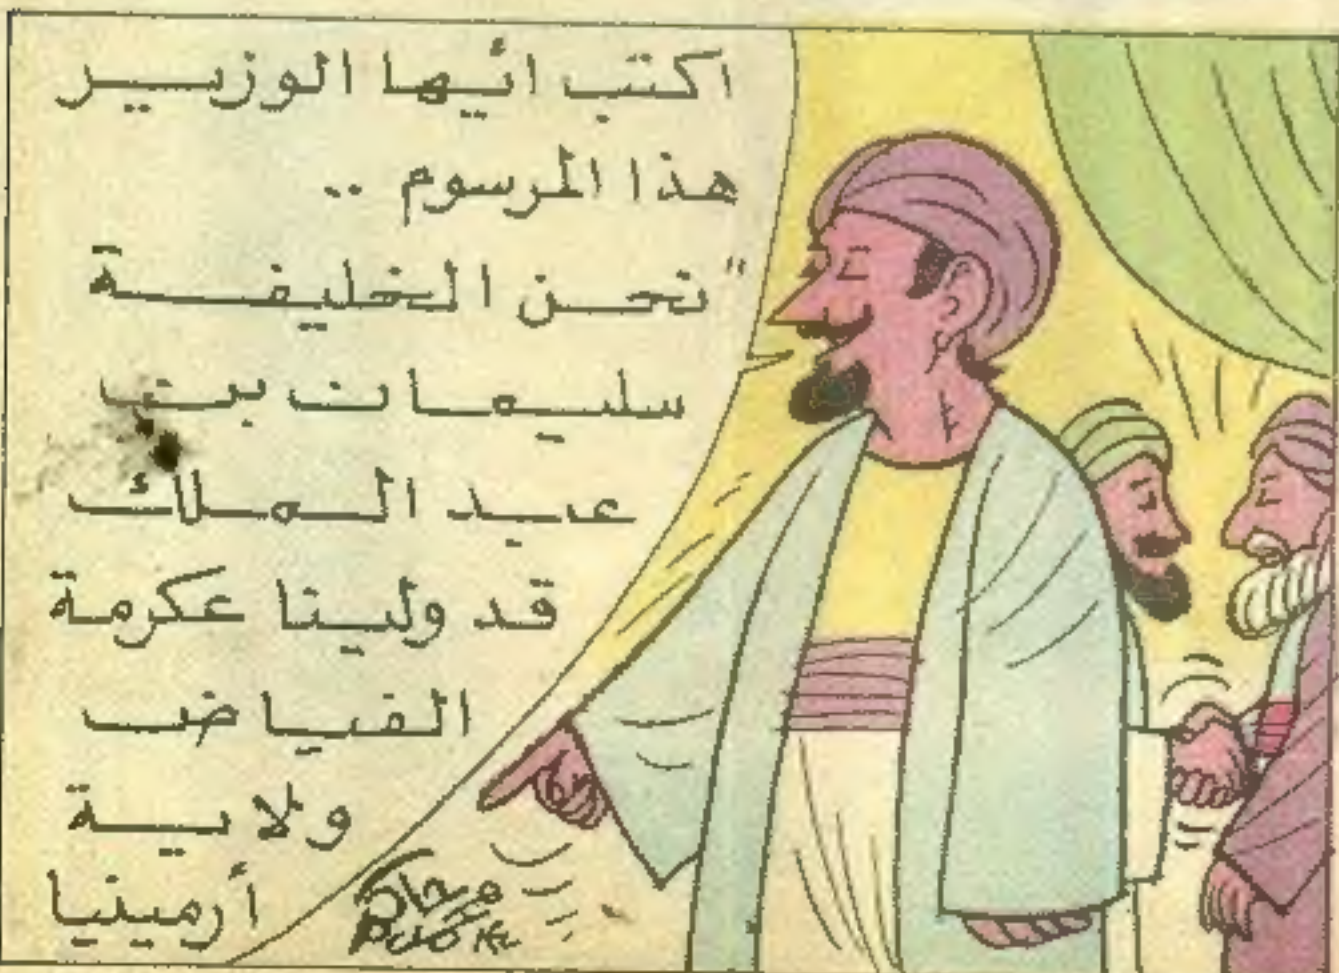 اكتب ائيها الوزير
هذا المرسوم ..
"نحن الخليفة
سليمان بن
عبد الملك
قد ولينا عكرمة
الفياض
ولاية
أرمينيا